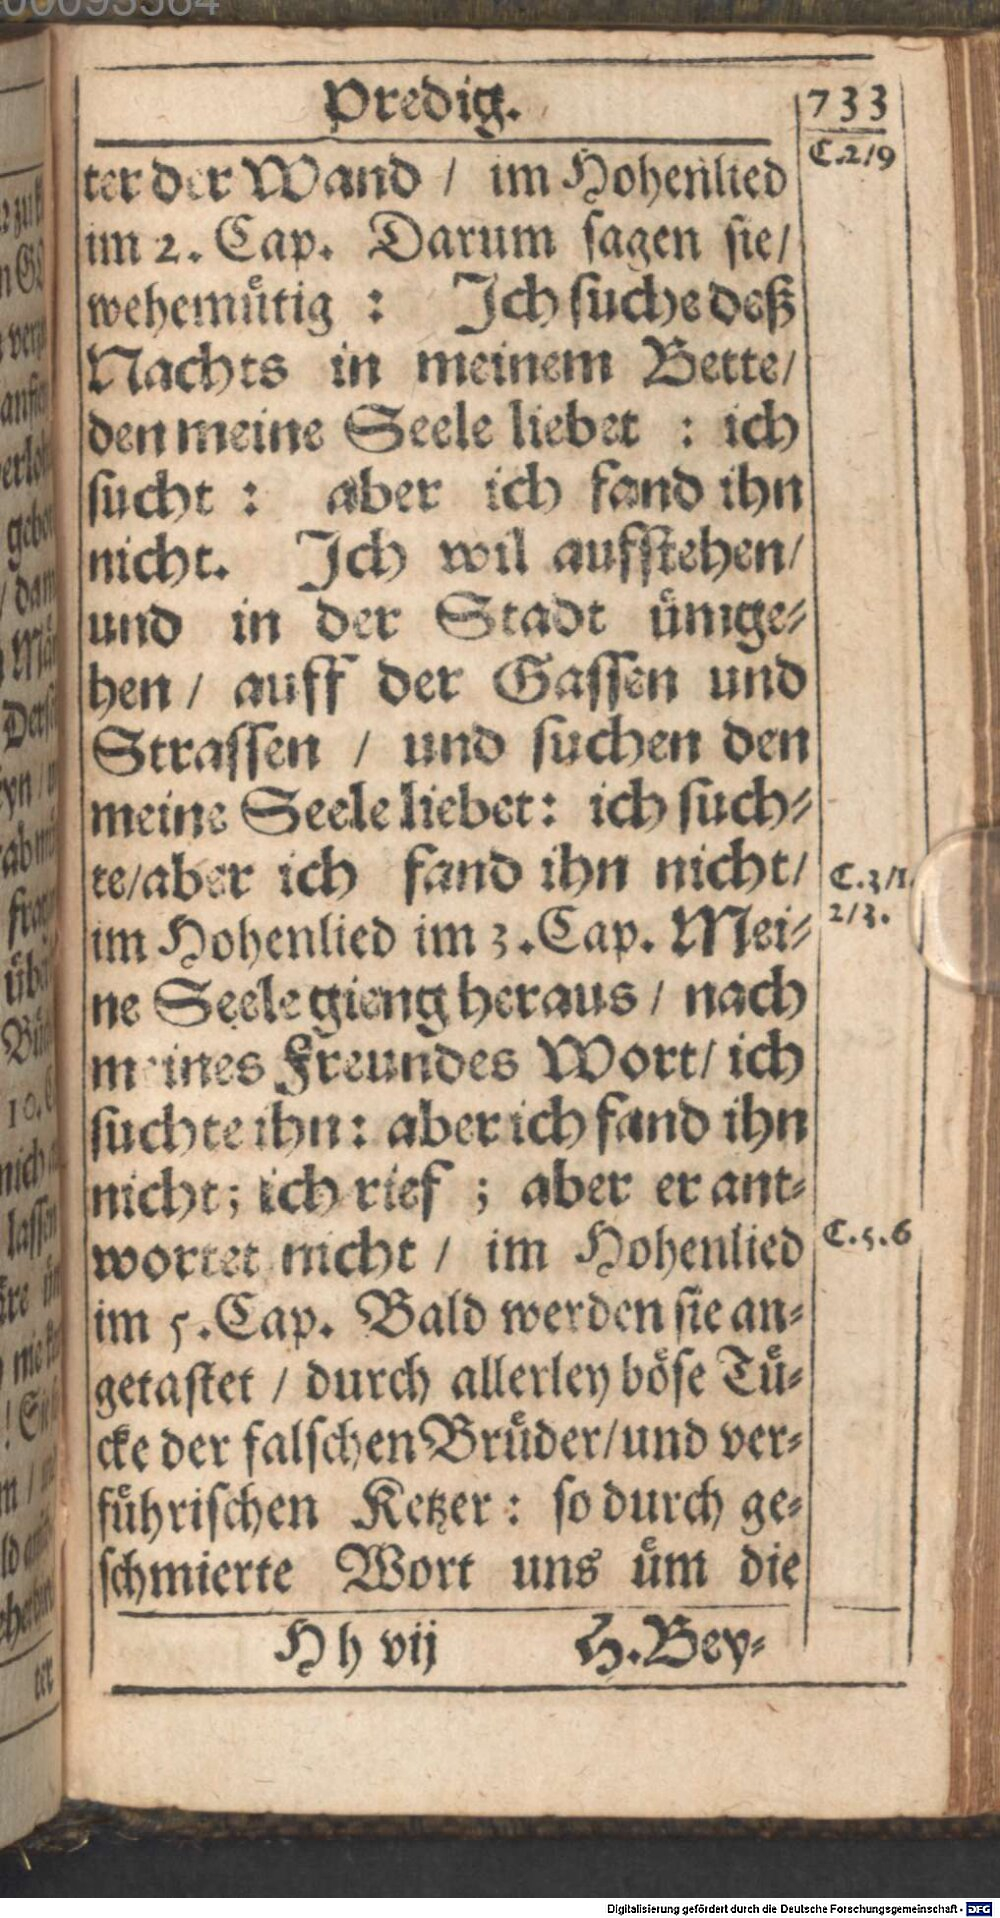 Predig.
733
C.2/9
ter der Wand / im Hohenlied
im 2. Cap. Darum sagen sie/
wehemuͤtig : Ich suche deß
Nachts in meinem Bette/
den meine Seele liebet : ich
sucht : aber ich fand ihn
nicht. Ich wil aufstehen/
und in der Stadt uͤmge-
hen / auff der Gassen und
Strassen / und suchen den
meine Seele liebet: ich such-
te/aber ich fand ihn nicht/
C.3/1.
2/3.
im Hohenlied im 3. Cap. Mei-
ne Seele gieng heraus / nach
meines Freundes Wort/ ich
suchte ihn: aber ich fand ihn
nicht; ich rief ; aber er ant-
wortet nicht / im Hohenlied
C.5.6
im 5. Cap. Bald werden sie an-
getastet / durch allerley boͤse Tuͤ-
cke der falschen Bruͤder/und ver-
fuͤhrischen Ketzer : so durch ge-
schmierte Wort uns uͤm die
Hh vij
H.Bey-
Digitalisierung gefördert durch die Deutsche Forschungsgemeinschaft - DFG